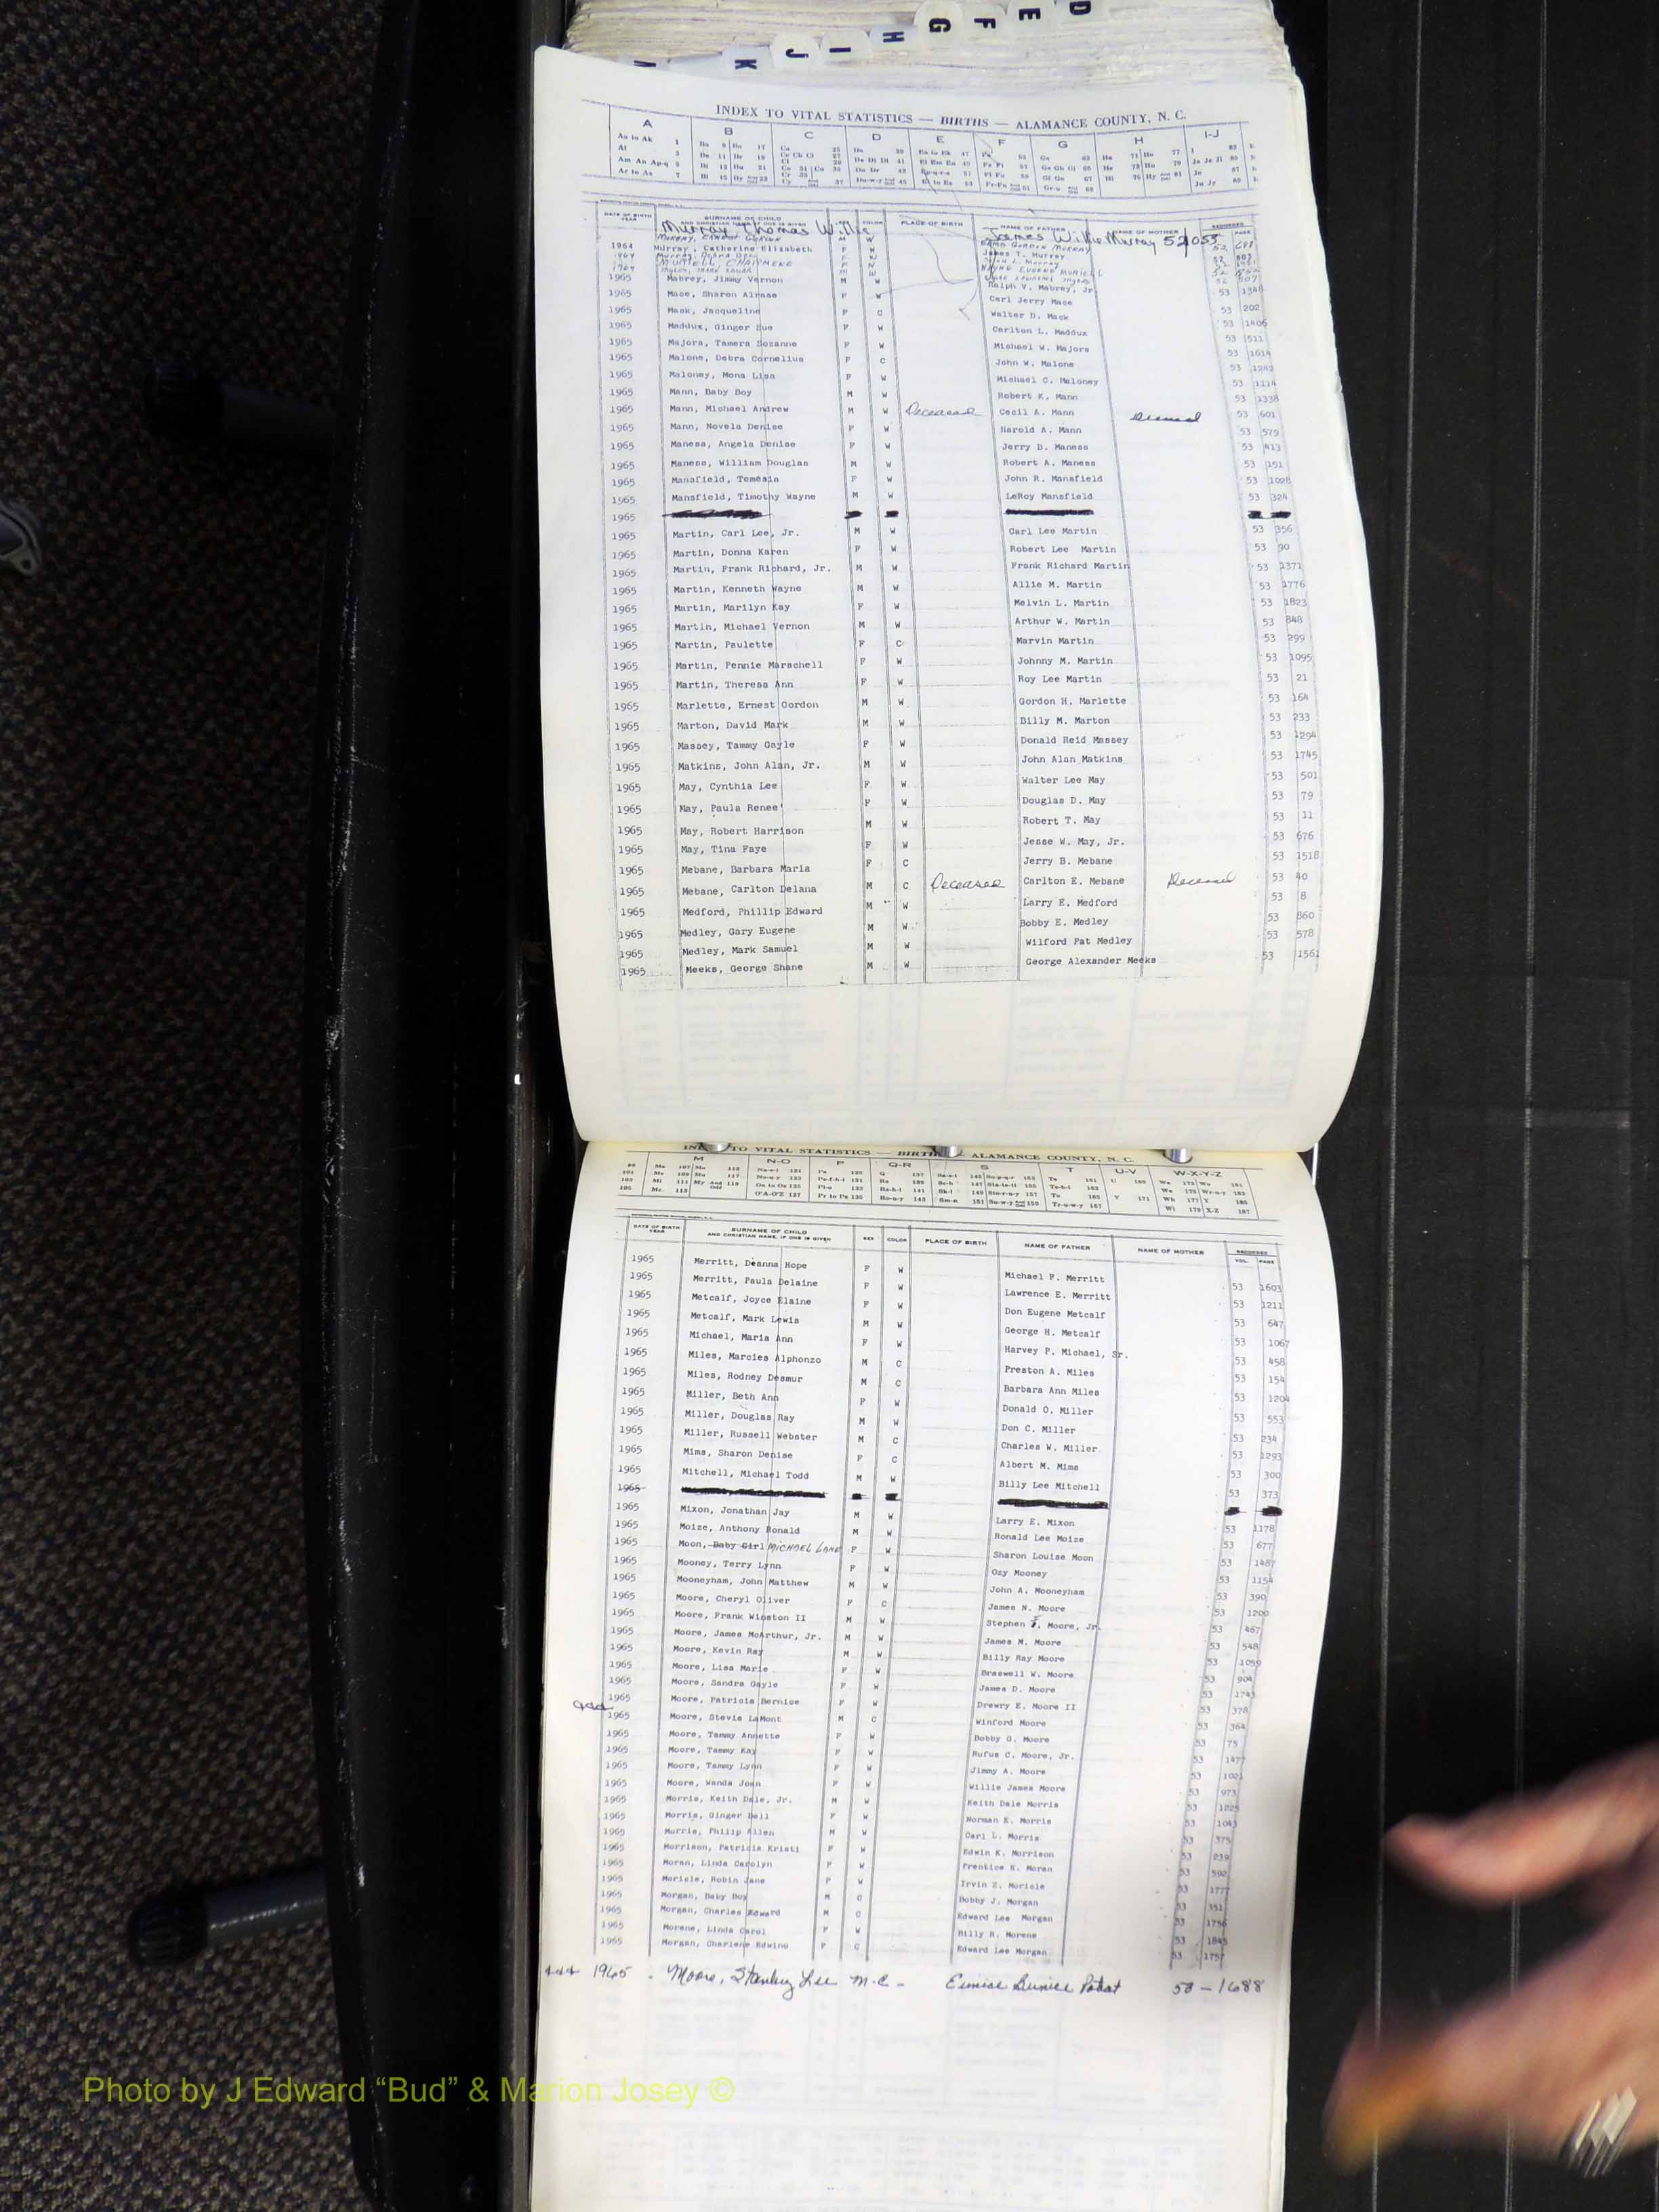 D
E
F
G
H
I
J
K
INDEX TO VITAL STATISTICS — BIRTHS — ALAMANCE COUNTY, N. C.
A B C D E F G H I-J
DATE OF BIRTH YEAR SURNAME OF CHILD AND CHRISTIAN NAME IF ONE IS GIVEN SEX COLOR PLACE OF BIRTH NAME OF FATHER NAME OF MOTHER RECORDED PAGE
Murray Thomas Willie James Willie Murray 52 1053
MURRAY, ERNEST GORDON M W GORDON MURRAY 52 698
1964 Murray, Catherine Elizabeth F W James T. Murray 52 803
1964 Murray, Donna F W Murray 52
MURIELL, CHARMENE F WAYNE EUGENE MURIELL 52
1964 M W 52 807
1965 Mabrey, Jimmy Vernon M W Ralph V. Mabrey, Jr. 53 1348
1965 Mace, Sharon Alrase F W Carl Jerry Mace 53 202
1965 Mack, Jacqueline F C Walter D. Mack 53 1406
1965 Maddux, Ginger Sue F W Carlton L. Maddux 53 511
1965 Majors, Tamera Suzanne F W Michael W. Majors 53 1614
1965 Malone, Debra Cornelius F C John W. Malone 53 1242
1965 Maloney, Mona Lisa F W Michael C. Maloney 53 1114
1965 Mann, Baby Boy M W Robert K. Mann 53 1338
1965 Mann, Michael Andrew M W Deceased Cecil A. Mann Deceased 53 601
1965 Mann, Novela Denise F W Harold A. Mann 53 579
1965 Maness, Angela Denise F W Jerry B. Maness 53 413
1965 Maness, William Douglas M W Robert A. Maness 53 151
1965 Mansfield, Temesia F W John R. Mansfield 53 1028
1965 Mansfield, Timothy Wayne M W LeRoy Mansfield 53 324
1965
1965 Martin, Carl Lee, Jr. M W Carl Lee Martin 53 356
1965 Martin, Donna Karen F W Robert Lee Martin 53 90
1965 Martin, Frank Richard, Jr. M W Frank Richard Martin 53 1371
1965 Martin, Kenneth Wayne M W Allie M. Martin 53 1776
1965 Martin, Marilyn Kay F W Melvin L. Martin 53 1823
1965 Martin, Michael Vernon M W Arthur W. Martin 53 848
1965 Martin, Paulette F C Marvin Martin 53 299
1965 Martin, Pennie Marschell F W Johnny M. Martin 53 1095
1965 Martin, Theresa Ann F W Roy Lee Martin 53 21
1965 Marlette, Ernest Gordon M W Gordon H. Marlette 53 164
1965 Marton, David Mark M W Billy M. Marton 53 233
1965 Massey, Tammy Gayle F W Donald Reid Massey 53 1294
1965 Matkins, John Alan, Jr. M W John Alan Matkins 53 1745
1965 May, Cynthia Lee F W Walter Lee May 53 501
1965 May, Paula Renee' F W Douglas D. May 53 79
1965 May, Robert Harrison M W Robert T. May 53 11
1965 May, Tina Faye F W Jesse W. May, Jr. 53 676
1965 Mebane, Barbara Maria F C Jerry B. Mebane 53 1518
1965 Mebane, Carlton Delana M C Deceased Carlton E. Mebane Deceased 53 40
1965 Medford, Phillip Edward M W Larry E. Medford 53 8
1965 Medley, Gary Eugene M W Bobby E. Medley 53 860
1965 Medley, Mark Samuel M W Wilford Pat Medley 53 578
1965 Meeks, George Shane M W George Alexander Meeks 53 1561
INDEX TO VITAL STATISTICS — BIRTHS — ALAMANCE COUNTY, N. C.
M N-O P Q-R S T U-V W-X-Y-Z
DATE OF BIRTH YEAR SURNAME OF CHILD AND CHRISTIAN NAME, IF ONE IS GIVEN SEX COLOR PLACE OF BIRTH NAME OF FATHER NAME OF MOTHER RECORDED VOL. PAGE
1965 Merritt, Deanna Hope F W Michael F. Merritt 53 1603
1965 Merritt, Paula Delaine F W Lawrence E. Merritt 53 1211
1965 Metcalf, Joyce Elaine F W Don Eugene Metcalf 53 647
1965 Metcalf, Mark Lewis M W George H. Metcalf 53 1067
1965 Michael, Maria Ann F W Harvey P. Michael, Sr. 53 458
1965 Miles, Marcies Alphonzo M C Preston A. Miles 53 154
1965 Miles, Rodney Desmur M C Barbara Ann Miles 53 1204
1965 Miller, Beth Ann F W Donald O. Miller 53 553
1965 Miller, Douglas Ray M W Don C. Miller 53 234
1965 Miller, Russell Webster M C Charles W. Miller 53 1293
1965 Mims, Sharon Denise F C Albert M. Mims 53 300
1965 Mitchell, Michael Todd M W Billy Lee Mitchell 53 373
1965
1965 Mixon, Jonathan Jay M W Larry E. Mixon 53 1178
1965 Moize, Anthony Ronald M W Ronald Lee Moize 53 677
1965 Moon, Baby Girl MICHAEL LANE F W Sharon Louise Moon 53 1487
1965 Mooney, Terry Lynn F W Ozy Mooney 53 1154
1965 Mooneyham, John Matthew M W John A. Mooneyham 53 390
1965 Moore, Cheryl Oliver F C James N. Moore 53 1200
1965 Moore, Frank Winston II M W Stephen F. Moore, Jr. 53 467
1965 Moore, James McArthur, Jr. M W James M. Moore 53 548
1965 Moore, Kevin Ray M W Billy Ray Moore 53 1059
1965 Moore, Lisa Marie F W Braswell W. Moore 53 904
1965 Moore, Sandra Gayle F W James D. Moore 53 1743
add 1965 Moore, Patricia Bernice F W Drewry E. Moore II 53 378
1965 Moore, Stevie LaMont M C Winford Moore 53 364
1965 Moore, Tammy Annette F W Bobby G. Moore 53 75
1965 Moore, Tammy Kay F W Rufus C. Moore, Jr. 53 1477
1965 Moore, Tammy Lynn F W Jimmy A. Moore 53 1021
1965 Moore, Wanda Joan F W Willie James Moore 53 973
1965 Morris, Keith Dale, Jr. M W Keith Dale Morris 53 1225
1965 Morris, Ginger Bell F W Norman E. Morris 53 1043
1965 Morris, Philip Allen M W Carl L. Morris 53 375
1965 Morrison, Patricia Kristi F W Edwin K. Morrison 53 239
1965 Moran, Linda Carolyn F W Prentice E. Moran 53 590
1965 Moricle, Robin Jane F W Irvin Z. Moricle 53 1777
1965 Morgan, Baby Boy M C Bobby J. Morgan 53 351
1965 Morgan, Charles Edward M C Edward Lee Morgan 53 1756
1965 Morene, Linda Carol F W Billy R. Morene 53 1845
1965 Morgan, Charlene Edwino F C Edward Lee Morgan 53 1757
add 1965 - Moore, Stanley Lee M-C- Eunice Poteat 53-1688
Photo by J Edward “Bud” & Marion Josey ©